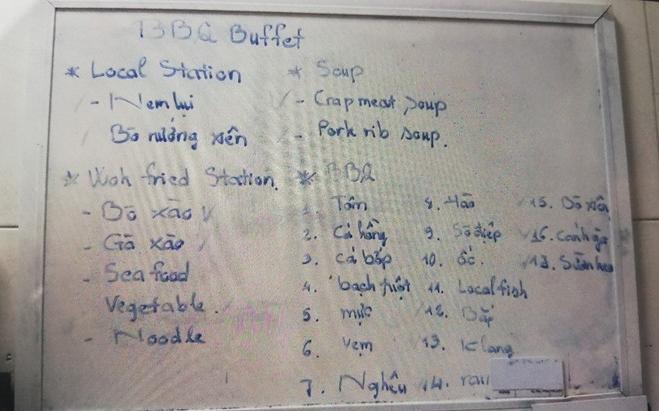 BBQ Buffet
* Local Station
- Nem lụi
Bò nướng xiên
* Wok fried Station
- Bò xào
- Gà xào
- Seafood
Vegetable
- Noodle
* Soup
- Crapmeat soup
- Pork rib soup.
* BBQ
1. Tôm
2. Cá hồng
3. cá bớp
4. bạch tuột
5. mực
6. Vẹm
7. Nghêu
8. Hào
9. Sò điệp
10. ốc.
11. Local fish
12. Bắp
13. K lang
14.
15. Bò xiên
16. Cánh gà
17. Sườn heo